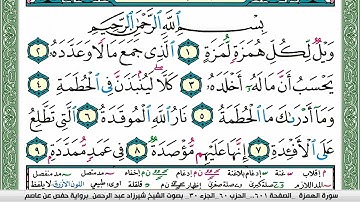 بِسْمِ ٱللَّهِ ٱلرَّحْمَٰنِ ٱلرَّحِيمِ
وَيْلٌ لِّكُلِّ هُمَزَةٍ لُّمَزَةٍ ١ ٱلَّذِى جَمَعَ مَالًا وَعَدَّدَهُۥ ٢
يَحْسَبُ أَنَّ مَالَهُۥٓ أَخْلَدَهُۥ ٣ كَلَّا ۖ لَيُنۢبَذَنَّ فِى ٱلْحُطَمَةِ ٤
وَمَآ أَدْرَىٰكَ مَا ٱلْحُطَمَةُ ٥ نَارُ ٱللَّهِ ٱلْمُوقَدَةُ ٦ ٱلَّتِى تَطَّلِعُ
عَلَى ٱلْأَفْـِٔدَةِ ٧ إِنَّهَا عَلَيْهِم مُّؤْصَدَةٌ ٨ فِى عَمَدٍ مُّمَدَّدَةٍۭ ٩
سورة الهمزة الصفحة ٦٠١ الحزب ٦٠ الجزء ٣٠ بصوت الشيخ شيرزاد عبد الرحمن برواية حفص عن عاصم